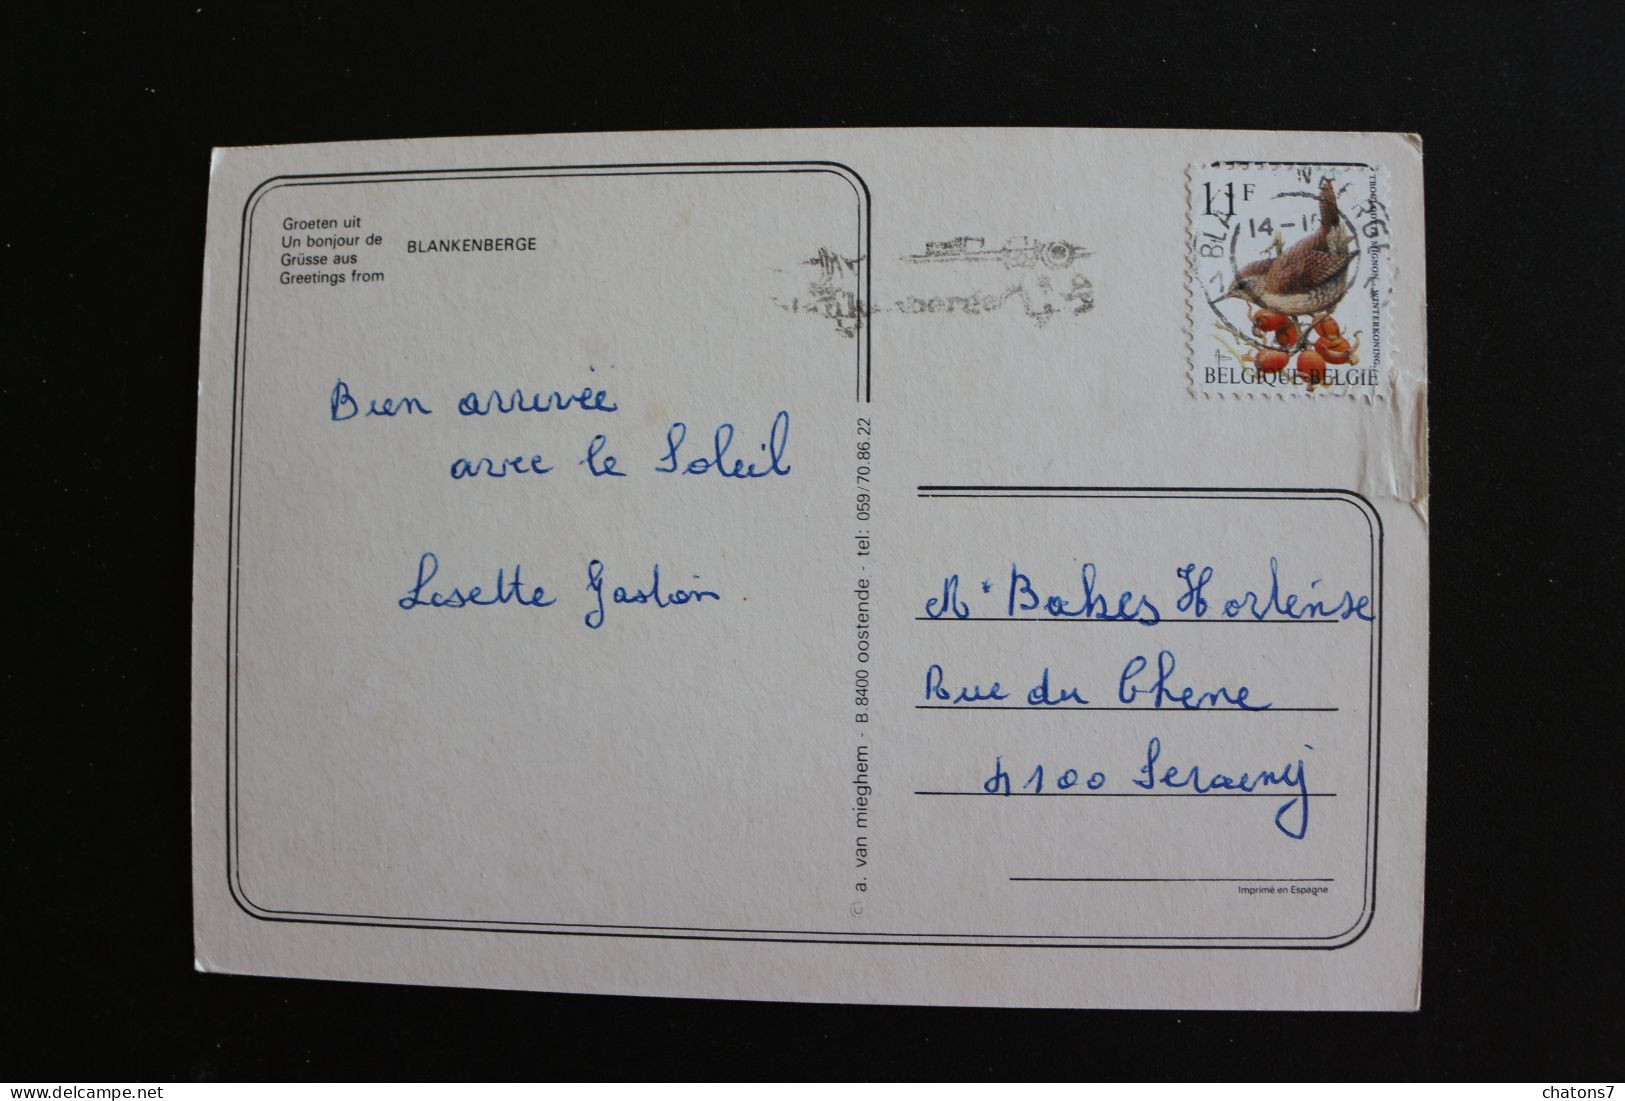 Groeten uit
Un bonjour de
Grüsse aus
Greetings from
BLANKENBERGE
Bien arrivée
avec le Soleil
Lisette Gaston
a. van mieghem - B.8400 oostende - tel: 059/70.86.22
11F
TROGLODYTE MIGNON - WINTERKONING
BELGIQUE-BELGIE
14-1
Bakes Hortense
Rue du Chene
4100 Seraing
Imprimé en Espagne
delcampe.net
chatons7